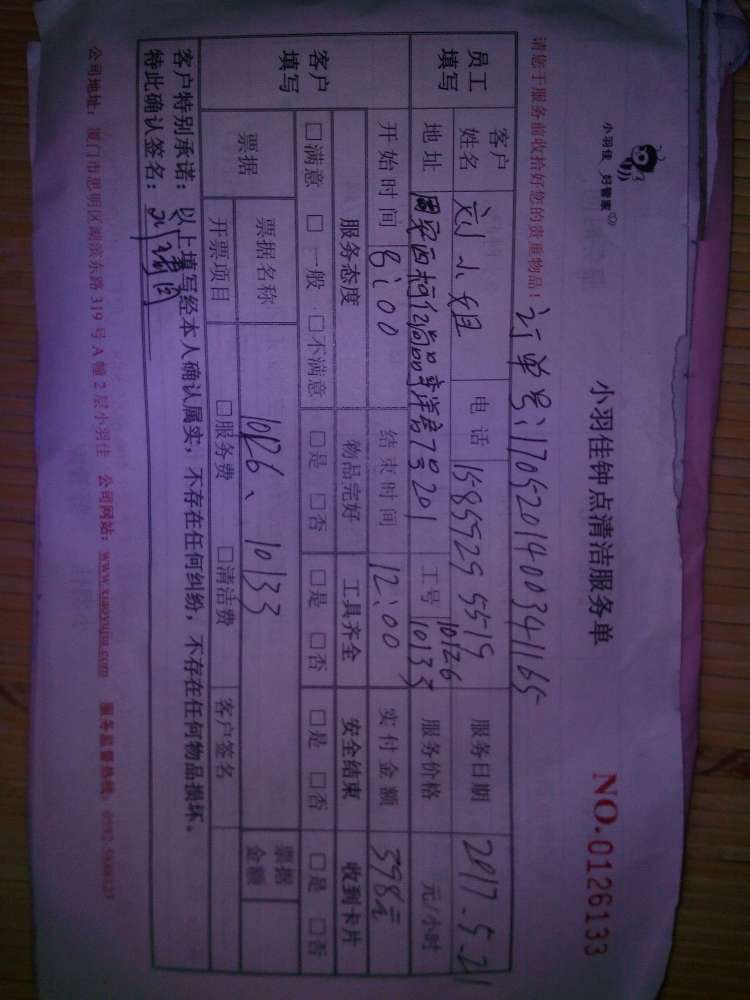 小羽佳 好管家
小羽佳钟点清洁服务单
NO.0126133
请您于服务前收拾好您的贵重物品!
订单号:1705201400341165
员工填写
客户姓名 刘小姐 电话 15855295519 服务日期 2017.5.21
地址 7号201 工号 10126 10133 服务价格 元/小时
客户填写
开始时间 8:00 结束时间 12:00 实付金额 398元
服务态度 物品完好 工具齐全 安全结束 收到卡片
□满意 □一般 □不满意 □是 □否 □是 □否 □是 □否 □是 □否
票据 票据名称 10126、10133 票据金额
开票项目 □服务费 □清洁费 客户签名
客户特别承诺:以上填写经本人确认属实,不存在任何纠纷,不存在任何物品损坏。
特此确认签名:
公司地址:厦门市思明区湖滨东路319号A幢2层小羽佳 公司网站:www.xiaoyujia.com 服务监督热线: